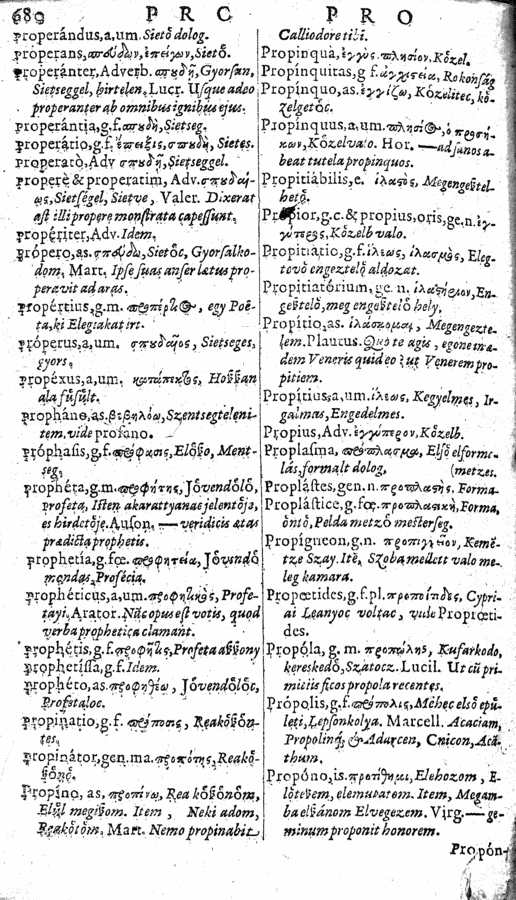 680 P R O
P R O
Properándus,a,um. Sietȏ dolog.
Properans, σπούδων, ἐπείγων, Sietȏ.
Properánter, Adverb. σπουδῇ, Gyorsan,
Sietseggel, hirtelen, Lucr. Usque adeo
properanter ab omnibus ignibus ejus.
Properántia, g.f. σπουδὴ, Sietseg.
Properátio, g.f. ἔπειξις, σπουδὴ, Sietes.
Properatò, Adv. σπουδῇ, Sietseggel.
Properè & properatim, Adv.
Sietségel, Sietve, Valer. Dixerat
ast illi propere monstrata capessunt.
Propériter, Adv. Idem.
Própero, as. σπούδω, Sietȏc, Gyorsalko-
dom, Mart. Ipse suas anser lætus pro-
peravit ad aras.
Propértius, g.m. egy Poë-
ta, ki Elegiakat irt.
Próperus, a, um. σπουδαῖος, Sietseges,
gyors.
Propéxus, a, um.
ala
Prophano, as. βεβηλόω, Szentsegteleni-
tem. vide profano.
Próphasis, g.f. πρόφασις, Ment-
seg.
Prophéta, g.m. προφήτης, Jȏvendȏlȏ,
profeta, Isten akarattyanac jelentȏje,
es hirdetȏje. Auson. — veridicis ætas
prædicta prophetis.
Prophetía, g.fœ. προφητεία, Jȏvendȏ
mondas, Profécia.
Prophéticus, a, um. προφητικὸς, Profe-
tayi, Arator. Nāc opus est votis, quod
verba prophetica clamant.
Prophétis, g.f. προφῆτις, Profeta
Prophetíssa, g.f. Idem.
Prophéto, as. προφητέω, Jȏvendȏlȏc,
Profetaloc.
Propinatio, g.f. πρόποσις,
tes.
Propinátor, gen.ma. προπότης,
Propíno, as. προπίνω,
Item, Neki adom,
Mart. Nemo propinabit
Calliodore tibi.
Propinquà, ἐγγὺς πλησίον, Kȏzel.
Propínquitas, g.f. ἀγχιστεία, Rokonság
Propínquo, as. ἐγγίζω, Kȏzelitec, kȏ-
zelgetȏc.
Propínquus, a, um. πλησίος, ὁ προσή-
κων, Kȏzelvalo. Hor. — ad sanos a-
beat tutela propinquos.
Propitiábilis, e. ἱλαστὸς,
hetȏ.
Propior, g.c. & propius, oris, ge.n. ἐγ-
γύτερος, Kȏzelb valo.
Propitiatio, g.f. ἵλεως, ἱλασμὸς, Eleg-
tevȏ engeztelȏ aldozat.
Propitiatórium, ge.n. ἱλαστήριον, En-
hely.
Propítio, as. ἱλάσκομαι, Megengezte-
lem. Plautus. Quo te agis, egone ma-
dem Veneris quid eo? ut Venerem pro-
pitiem.
Propítius, a, um. ἵλεως, Kegyelmes, Ir-
galmas, Engedelmes.
Propius, Adv. ἐγγύτερον, Kȏzelb.
Proplasma, πρόπλασμα, Elsȏ elforma-
lás, formált dolog, (metzes.
Proplástes, gen.n. προπλαστὴς, Forma-
Proplástice, g.fœ. προπλαστικὴ, Forma,
ȏntȏ, Pelda metzȏ mesterseg.
Propígneon, g.n. προπιγεῖον, Kemē-
tze Szay. Itē, Szoba mellett valo me-
leg kamara.
Propœtides, g.f.pl. προποίτιδες, Cypri-
ai Leanyoc voltac, vide Propræti-
des.
Propóla, g. m. προπώλης, Kufarkodo,
kereskedȏ, Szatocz. Lucil. Ut cū pri-
mitiis ficos propola recentes.
Própolis, g.f. πρόπολις, Méhec elsȏ epū-
leti, Lepsonkolya. Marcell. Acaciam,
Propolinq; & Adarcen, Cnicon, Acā-
thum.
Propóno, is. προτίθημι, Elehozom, E-
lȏtevem, elemutatom. Item, Megam-
Elvegezem. Virg. — ge-
minum proponit honorem.
Propón-